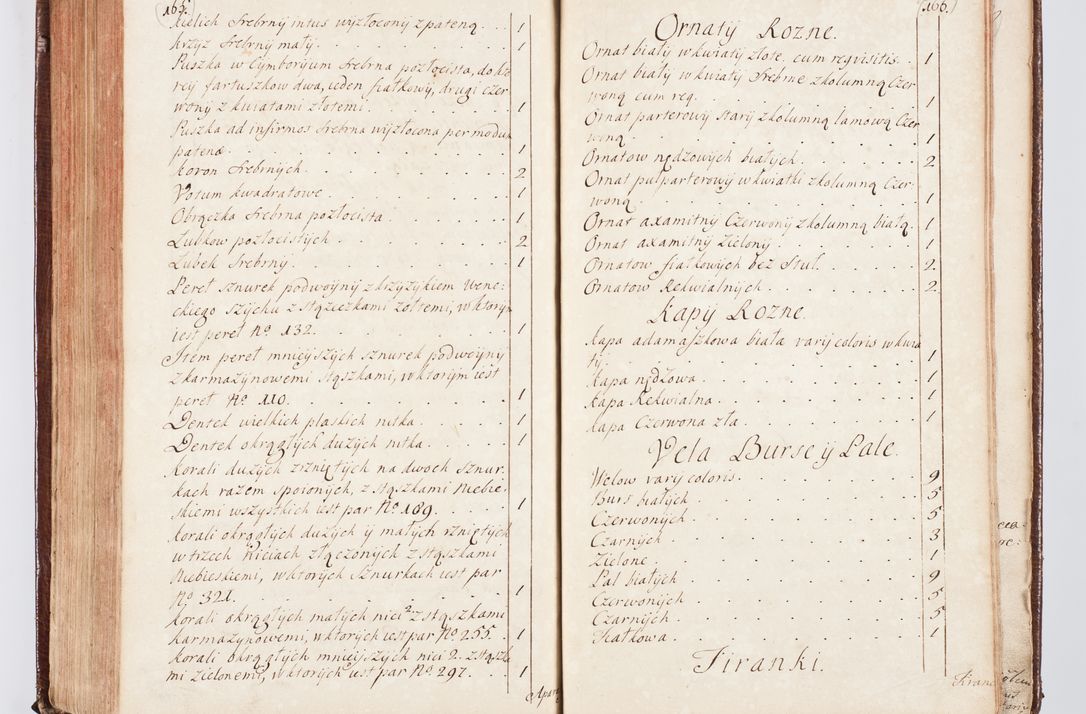 165.
Kielich Srebrny intus wyzłocony z pateną . . 1
Krzyż Srebrny mały . . . . . . 1
Puszka w Cymboryum Srebrna pozłocista, do kto
rey fartuszkow dwa, ieden fiałkowy, drugi czer
wony z kwiatami złotemi . . . . . 1
Puszka ad infirmos Srebrna wyzłocona per modum
patenæ . . . . . . . . 1
Koron Srebrnych . . . . . . . 2
Votum kwadratowe . . . . . . 1
Obrączka Srebrna pozłocista . . . . . 1
Lubkow pozłocistych . . . . . . 2
Lubek Srebrny . . . . . . . 1
Pereł sznurek podwoyny z krzyżykiem Wene:
ckiego szychu z stążeczkami żołtemi, w ktorym
iest pereł No. 132. . . . . . . 1
Item pereł mnieyszych sznurek podwoyny
z karmazynowemi stąszkami, w ktorym iest
pereł No. 110. . . . . . . . 1
Dentek wielkich płaskich nitka . . . . 1
Dentek okrągłych dużych nitka . . . . 1
Korali dużych zrzniętych na dwoch sznur.
kach razem spoionych, z stąszkami Niebie.
skiemi wszystkich iest par No. 189. . . . 1
Korali okrągłych dużych y małych rzniętych
w trzech niciach złączonych z stąszkami
Niebieskiemi, w ktorych sznurkach iest par
No. 321. . . . . . . . . 1
Korali okrągłych małych nici 2 z stąszkami
Karmazynowemi, w ktorych iest par No. 255. . . 1
Korali okrągłych mnieyszych nici 2. z stąszka
mi zielonemi, w ktorych iest par No. 297. . . 1
166.
Ornaty Rozne.
Ornat biały w kwiaty złote, cum requisitis . . 1
Ornat biały w kwiaty Srebrne z kolumną Czer
woną cum req. . . . . . . . 1
Ornat parterowy stary z kolumną lamową Czer
woną . . . . . . . . . 1
Ornatow nędzowych białych . . . . . 2
Ornat pułparterowy w kwiatki z kolumną Czer:
woną . . . . . . . . . 1
Ornat axamitny Czerwony z kolumną białą . 1
Ornat axamitny Zielony . . . . . . 1
Ornatow fiałkowych bez Stuł . . . . . 2
Ornatow Rekwialnych . . . . . . 2
Kapy Rozne.
Kapa adamaszkowa biała varij coloris w kwia
ty . . . . . . . . . . 1
Kapa nędzowa . . . . . . . 1
Kapa Rekwialna . . . . . . . 1
Kapa Czerwona zła . . . . . . 1
Vela Burse y Pale.
Welow varij coloris . . . . . . 9
Burs białych . . . . . . . 5
Czerwonych . . . . . . . 5
Czarnych . . . . . . . . 3
Zielone . . . . . . . . 1
Pal białych . . . . . . . 9
Czerwonych . . . . . . . 5
Czarnych . . . . . . . . 5
Fiałkowa . . . . . . . . 1
Firanki.